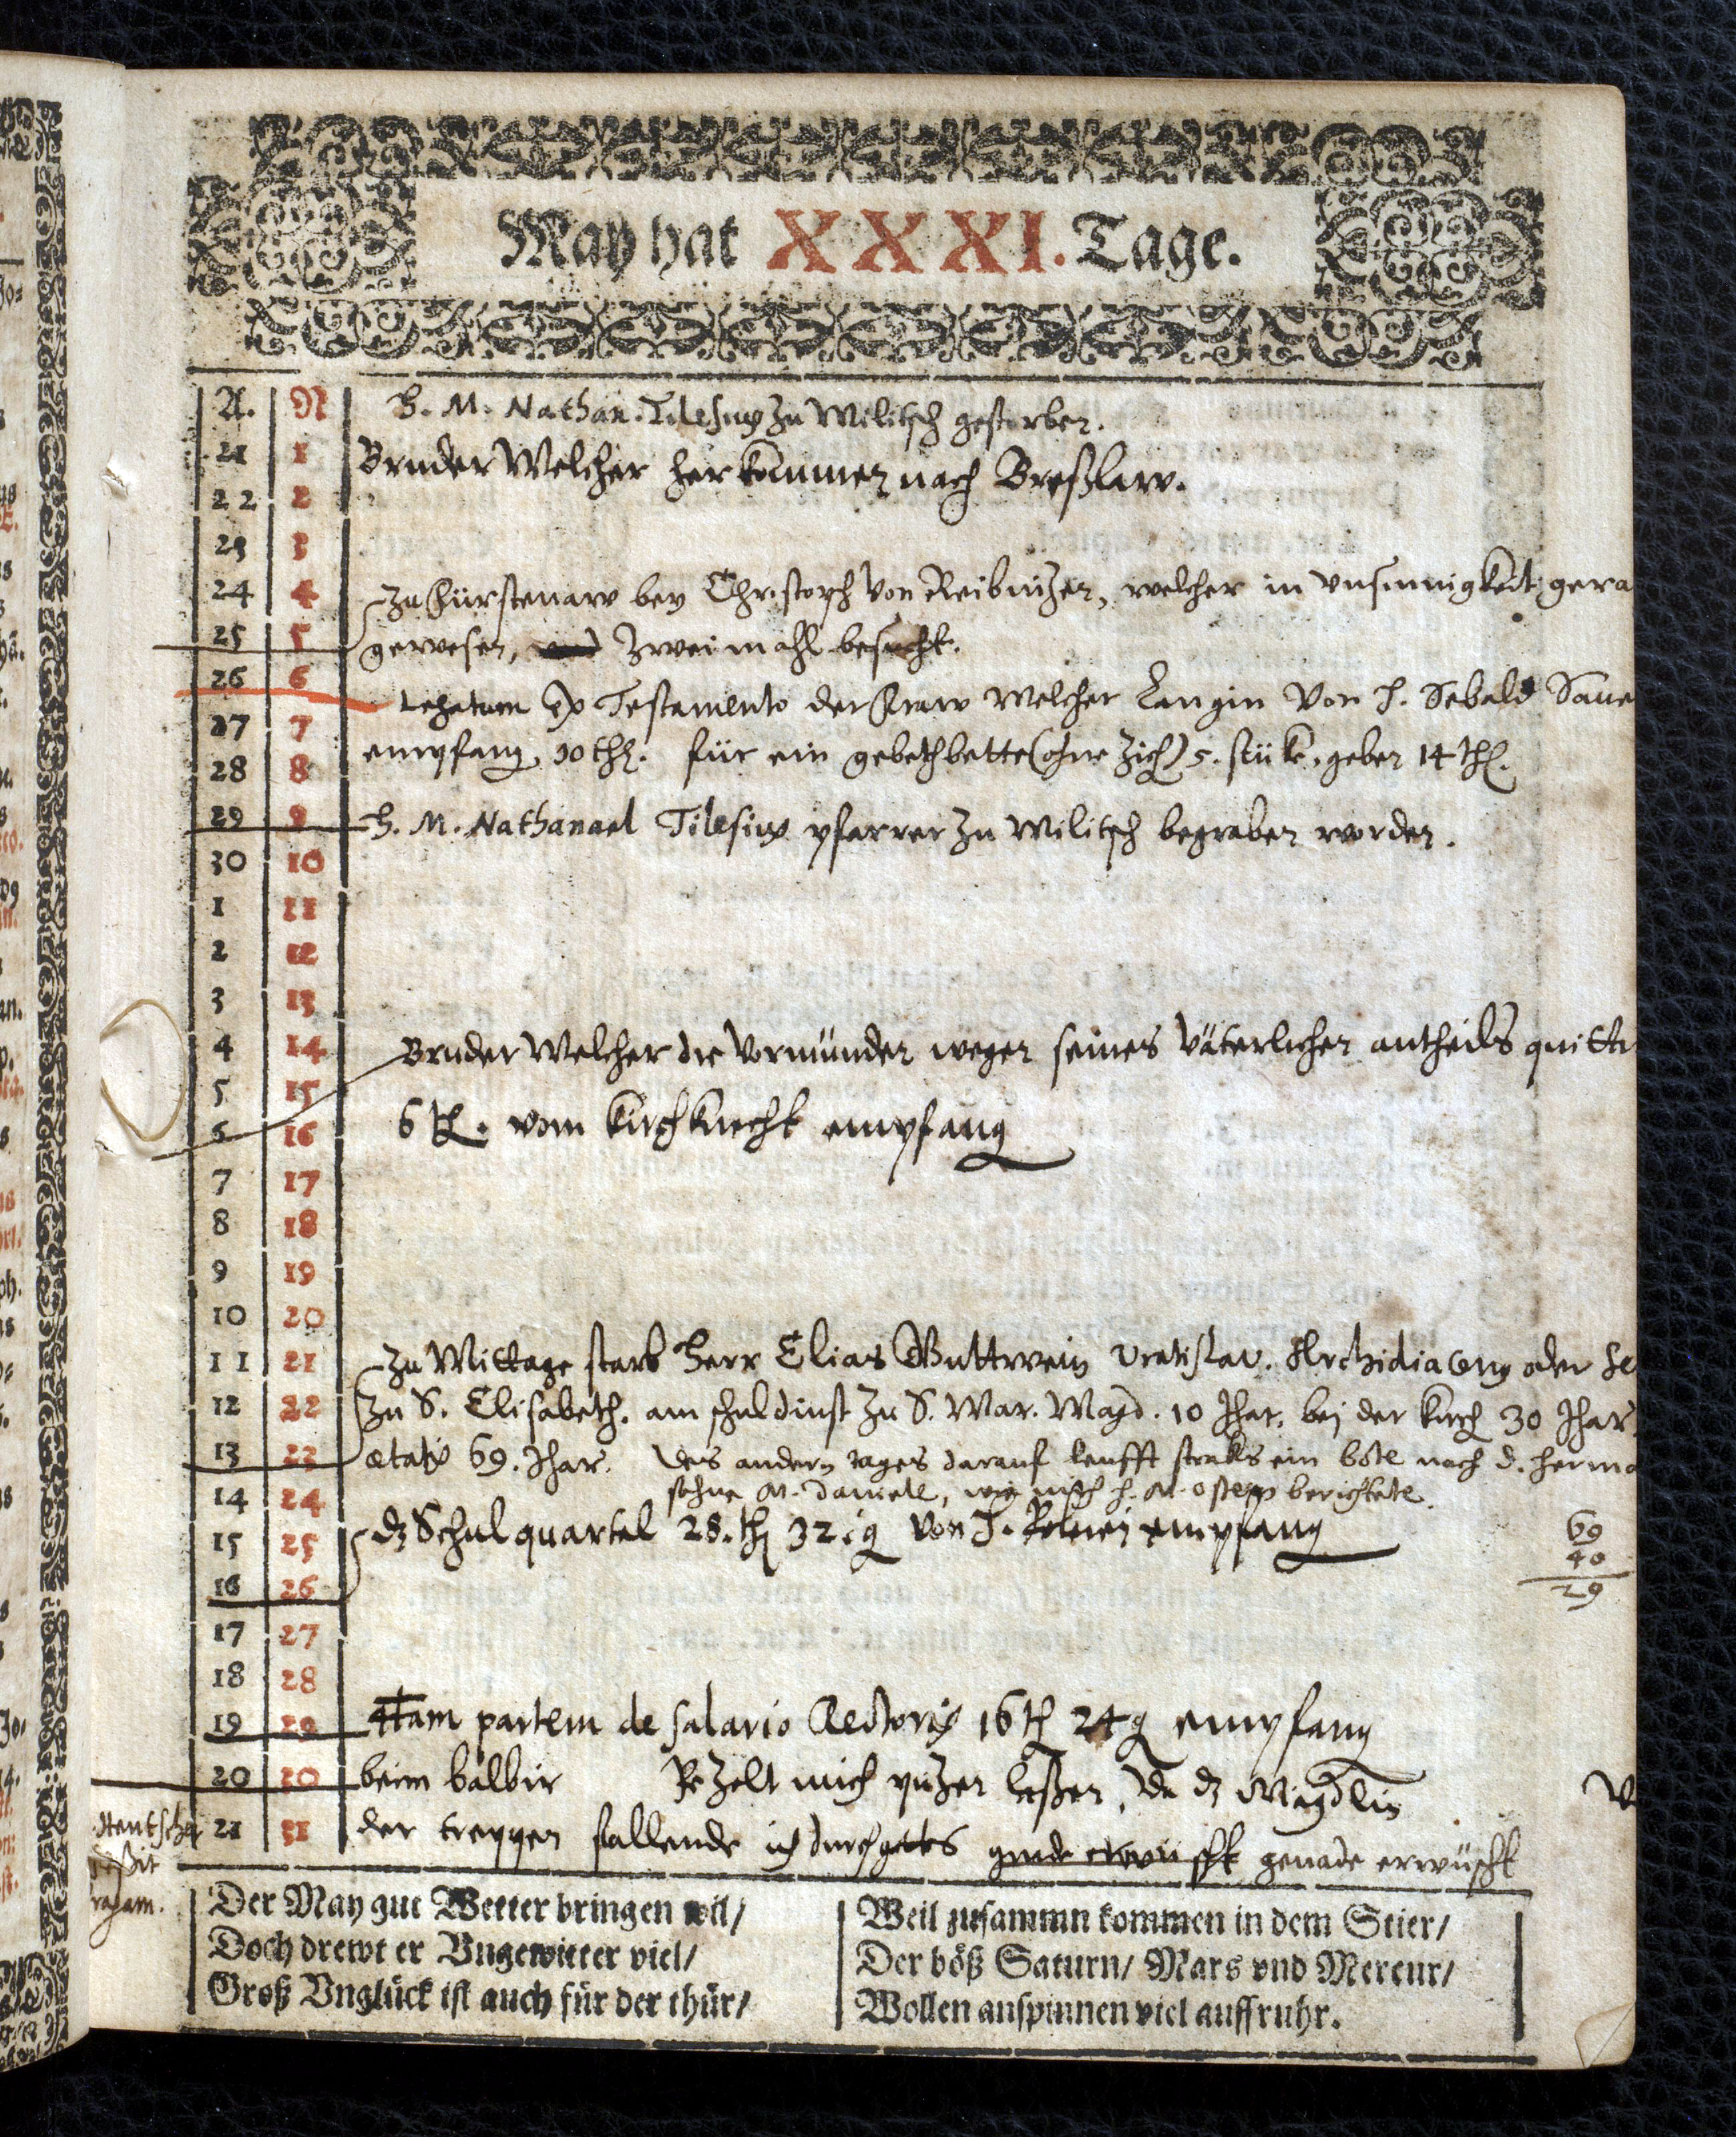 May hat XXXI. Tage.
A. N H. M. Nathan. Tilesius zu Militsch gestorben.
21 1 Bruder Melcher her kommen nach Breßlaw.
22 2
23 3
24 4 Zu Fürstenaw bey Christoph von Reibnizen, welcher in unsinnigkeit gera
25 5 gewesen, zweimahl besucht.
26 6 Legatum ex Testamento der Fraw Melcher Langin von H. Sebald Saue
27 7 empfang. 10 thl. für ein gebethbette (ohne Zich) 5. stük. geben 14 thl.
28 8
29 9 H. M. Nathanael Tilesius pfarrer zu Militsch begraben worden.
30 10
1 11
2 12
3 13
4 14 Bruder Melcher die Vormünden wegen seines väterlichen antheils quitti
5 15
6 16 6 thl. vom Kirchknecht empfang
7 17
8 18
9 19
10 20
11 21 Zu Mittage starb Herr Elias Guttwein Vratislav. Archidiaconus oder Se
12 22 Zu S. Elisabeth. am schuldinst zu S. Mar. Magd. 10 Jhar. bei der Kirch 30 Jhar.
13 23 ætatis 69. Jhar. des andern tages darauf leufft straks ein bote nach d. Herma
14 24 sohne M. Daniele, wie mich H. M. berichtete.
15 25 dz Schul quartal 28. thl 32. g von H. empfang
16 26
69
40
29
17 27
18 28
19 29 4tam partem de salario Rectoris 16 thl 24 g empfang
20 30 beim balbir mich puzen laßen, da dz Migdlin
21 31 der treppen fallende ich durch gottes genade erwüscht
Der May gut Wetter bringen wil/
Doch drewt er Vngewitter viel/
Groß Vnglück ist auch für der thür/
Weil zusammn kommen in dem Stier/
Der böß Saturn/ Mars vnd Mercur/
Wollen anspinnen viel auffruhr.